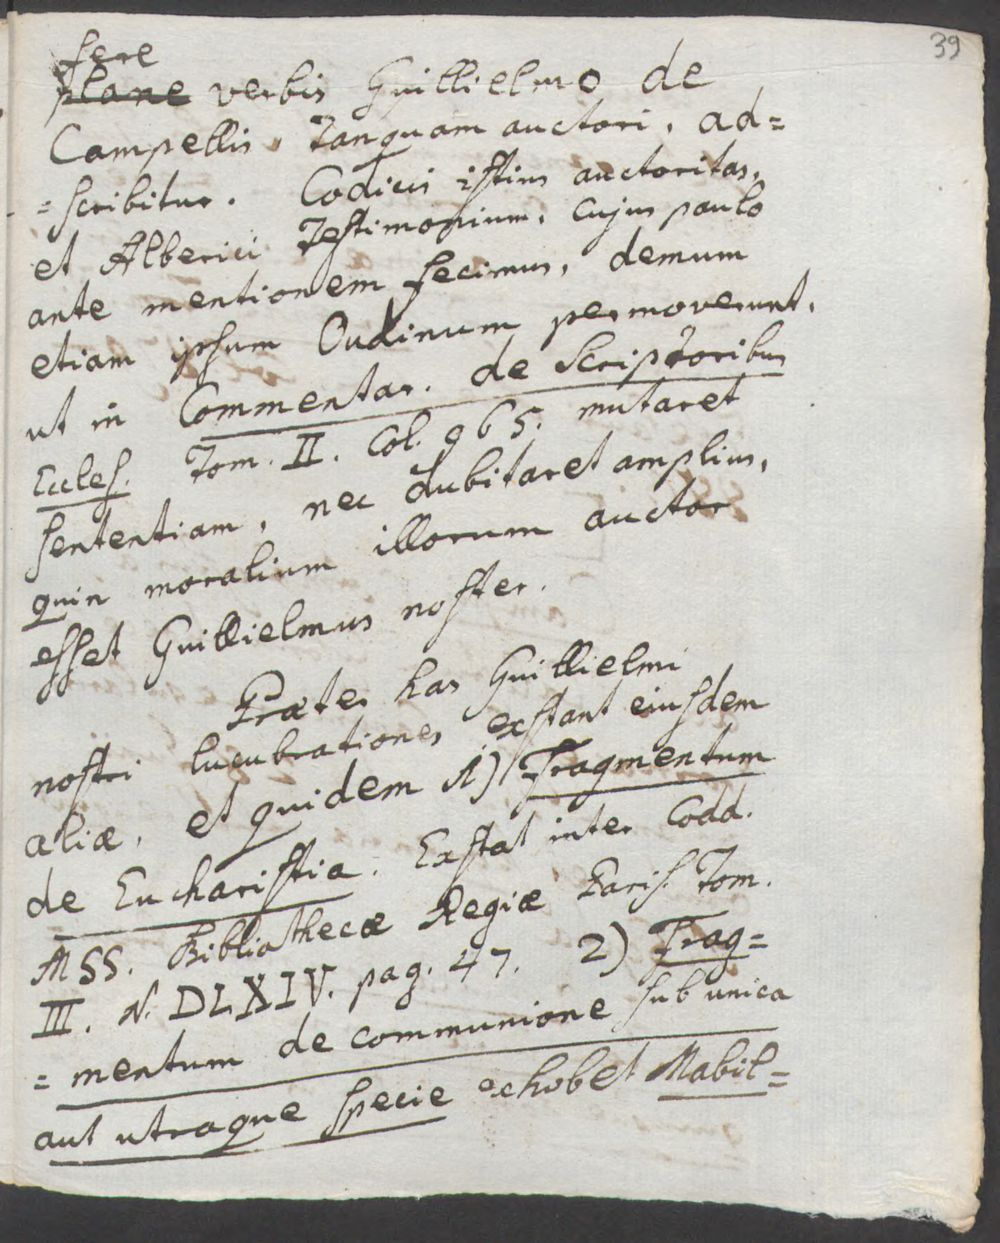 39
fere
plane verbis Guillielmo de
Campellis, tanquam auctori, ad=
=scribitur. Codicis istius auctoritas,
et Alberici testimonium, cujus paulo
ante mentionem fecimus, demum
etiam ipsum Oudinum permoverunt,
ut in Commentar. de Scriptoribus
Eccles. Tom. II. Col. 965. mutaret
sententiam, nec dubitaret amplius,
quin moralium illorum auctor
esset Guillielmus noster.
Præter has Guillielmi
nostri lucubrationes exstant eiusdem
aliæ, et quidem 1) Fragmentum
de Eucharistia. Exstat inter Codd.
MSS. Bibliothecæ Regiæ Paris. Tom.
III. N. DLXIV. pag. 47. 2) Frag=
=mentum de communione sub unica
aut utraque specie exhibet Mabil=